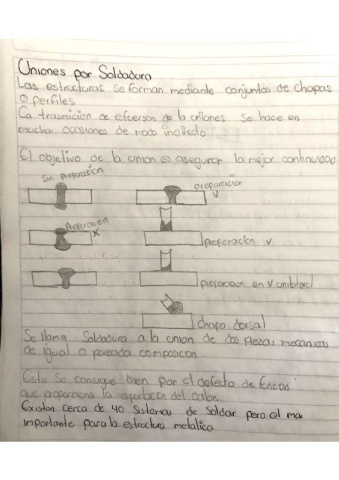 Uniones por Soldadura
Las estructuras se forman mediante conjuntos de chapas
o perfiles
La trasmicion de efuerson de la uñiones se hace en
muchas occiones de modo indirecto
El objetivo de la union es asegurar la mejor continuidad
Sin preparacion
preparacion
V
Preparacion
X
preparacion V
preparacion en V umbilical
chapa dorsal
Se llama Soldadura a la union de dos piezas mecanicas
de igual o parecida composicon
Esto se consigue bien por el
que proporciona la aportacion del calor.
Existen cerca de 40 Sistemas de Soldar pero el mas
importante para la estructura metalica